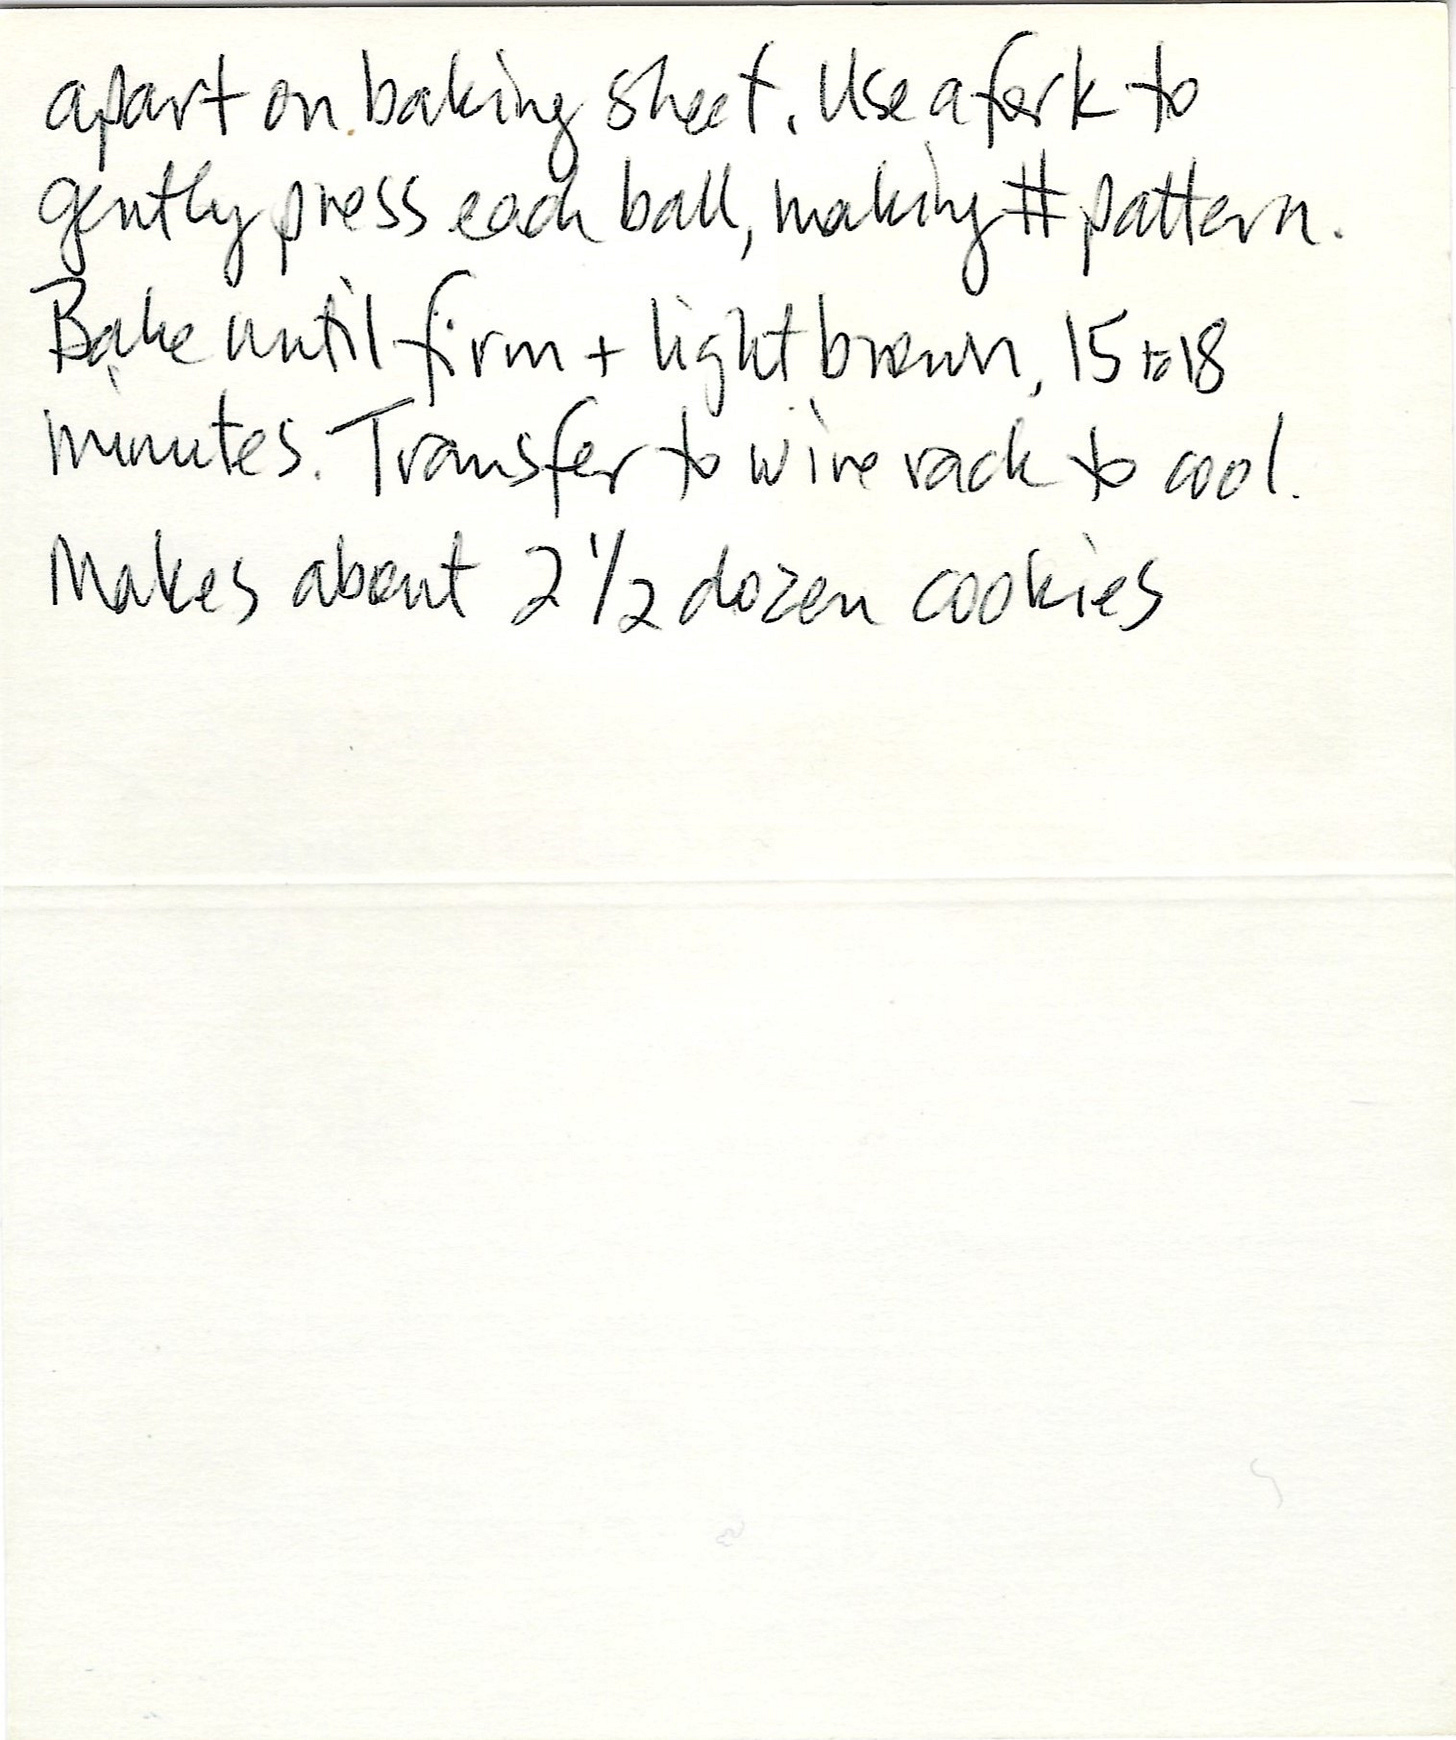 apart on baking sheet. Use a fork to
gently press each ball, making # pattern.
Bake until firm + light brown, 15 to 18
minutes. Transfer to wire rack to cool.
Makes about 2 1/2 dozen cookies